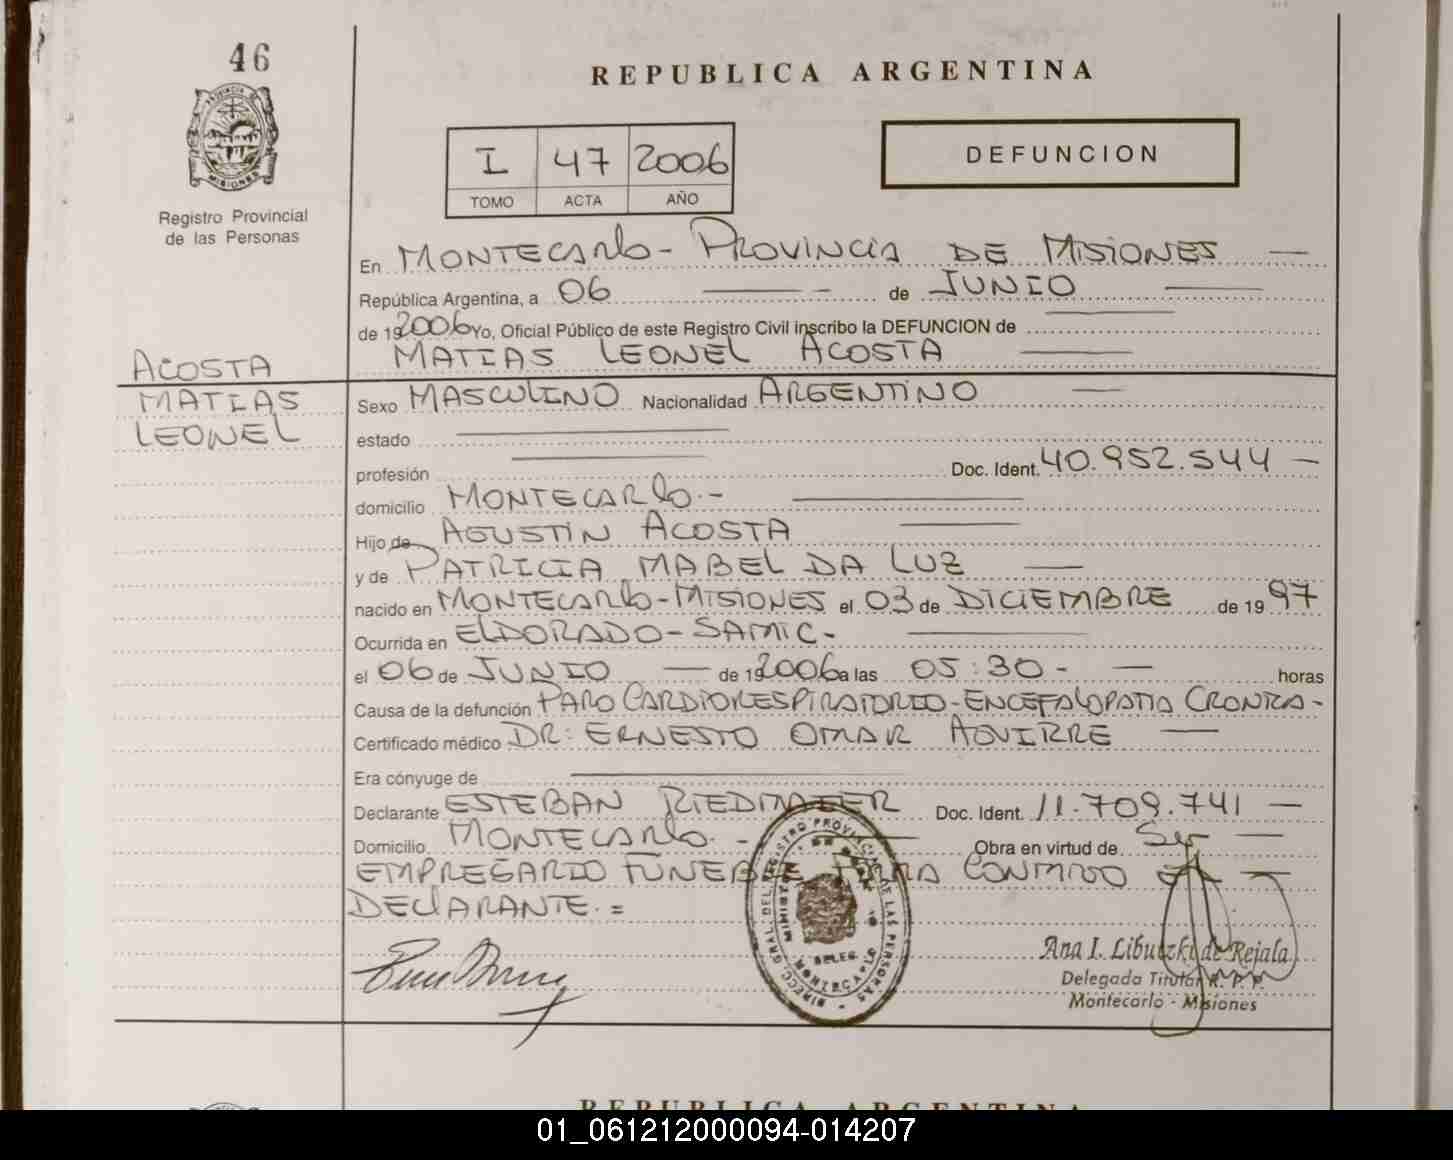 46
REPUBLICA ARGENTINA
PROVINCIA DE
MISIONES
I 47 2006
TOMO ACTA AÑO
DEFUNCION
Registro Provincial
de las Personas
En MONTECARLO - PROVINCIA DE MISIONES —
República Argentina, a 06 — de JUNIO —
de 192006 Yo, Oficial Público de este Registro Civil inscribo la DEFUNCION de —
ACOSTA MATIAS LEONEL ACOSTA —
MATIAS Sexo MASCULINO Nacionalidad ARGENTINO —
LEONEL estado —
profesión — Doc. Ident. 40.952.544 —
domicilio MONTECARLO.- —
Hijo de AGUSTIN ACOSTA —
y de PATRICIA MABEL DA LUZ —
nacido en MONTECARLO-MISIONES el 03 de DICIEMBRE de 1997
Ocurrida en ELDORADO - SAMIC - —
el 06 de JUNIO — de 192006 a las 05:30 - — horas
Causa de la defunción PARO CARDIORESPIRATORIO - ENCEFALOPATIA CRONICA -
Certificado médico DR: ERNESTO OMAR AGUIRRE —
Era cónyuge de —
Declarante ESTEBAN RIEDMAIER Doc. Ident. 11.709.741 —
Domicilio MONTECARLO. - — Obra en virtud de Ser —
EMPRESARIO FUNEBRE FIRMA CONMIGO EL —
DECLARANTE. =
DIRECC. GRAL. DEL REGISTRO PROVINCIAL DE LAS PERSONAS
DELEG.
MONTECARLO
Ana I. Libutzki de Rejala
Delegada Titular R. P. P.
Montecarlo - Misiones
REPUBLICA ARGENTINA
01_061212000094-014207